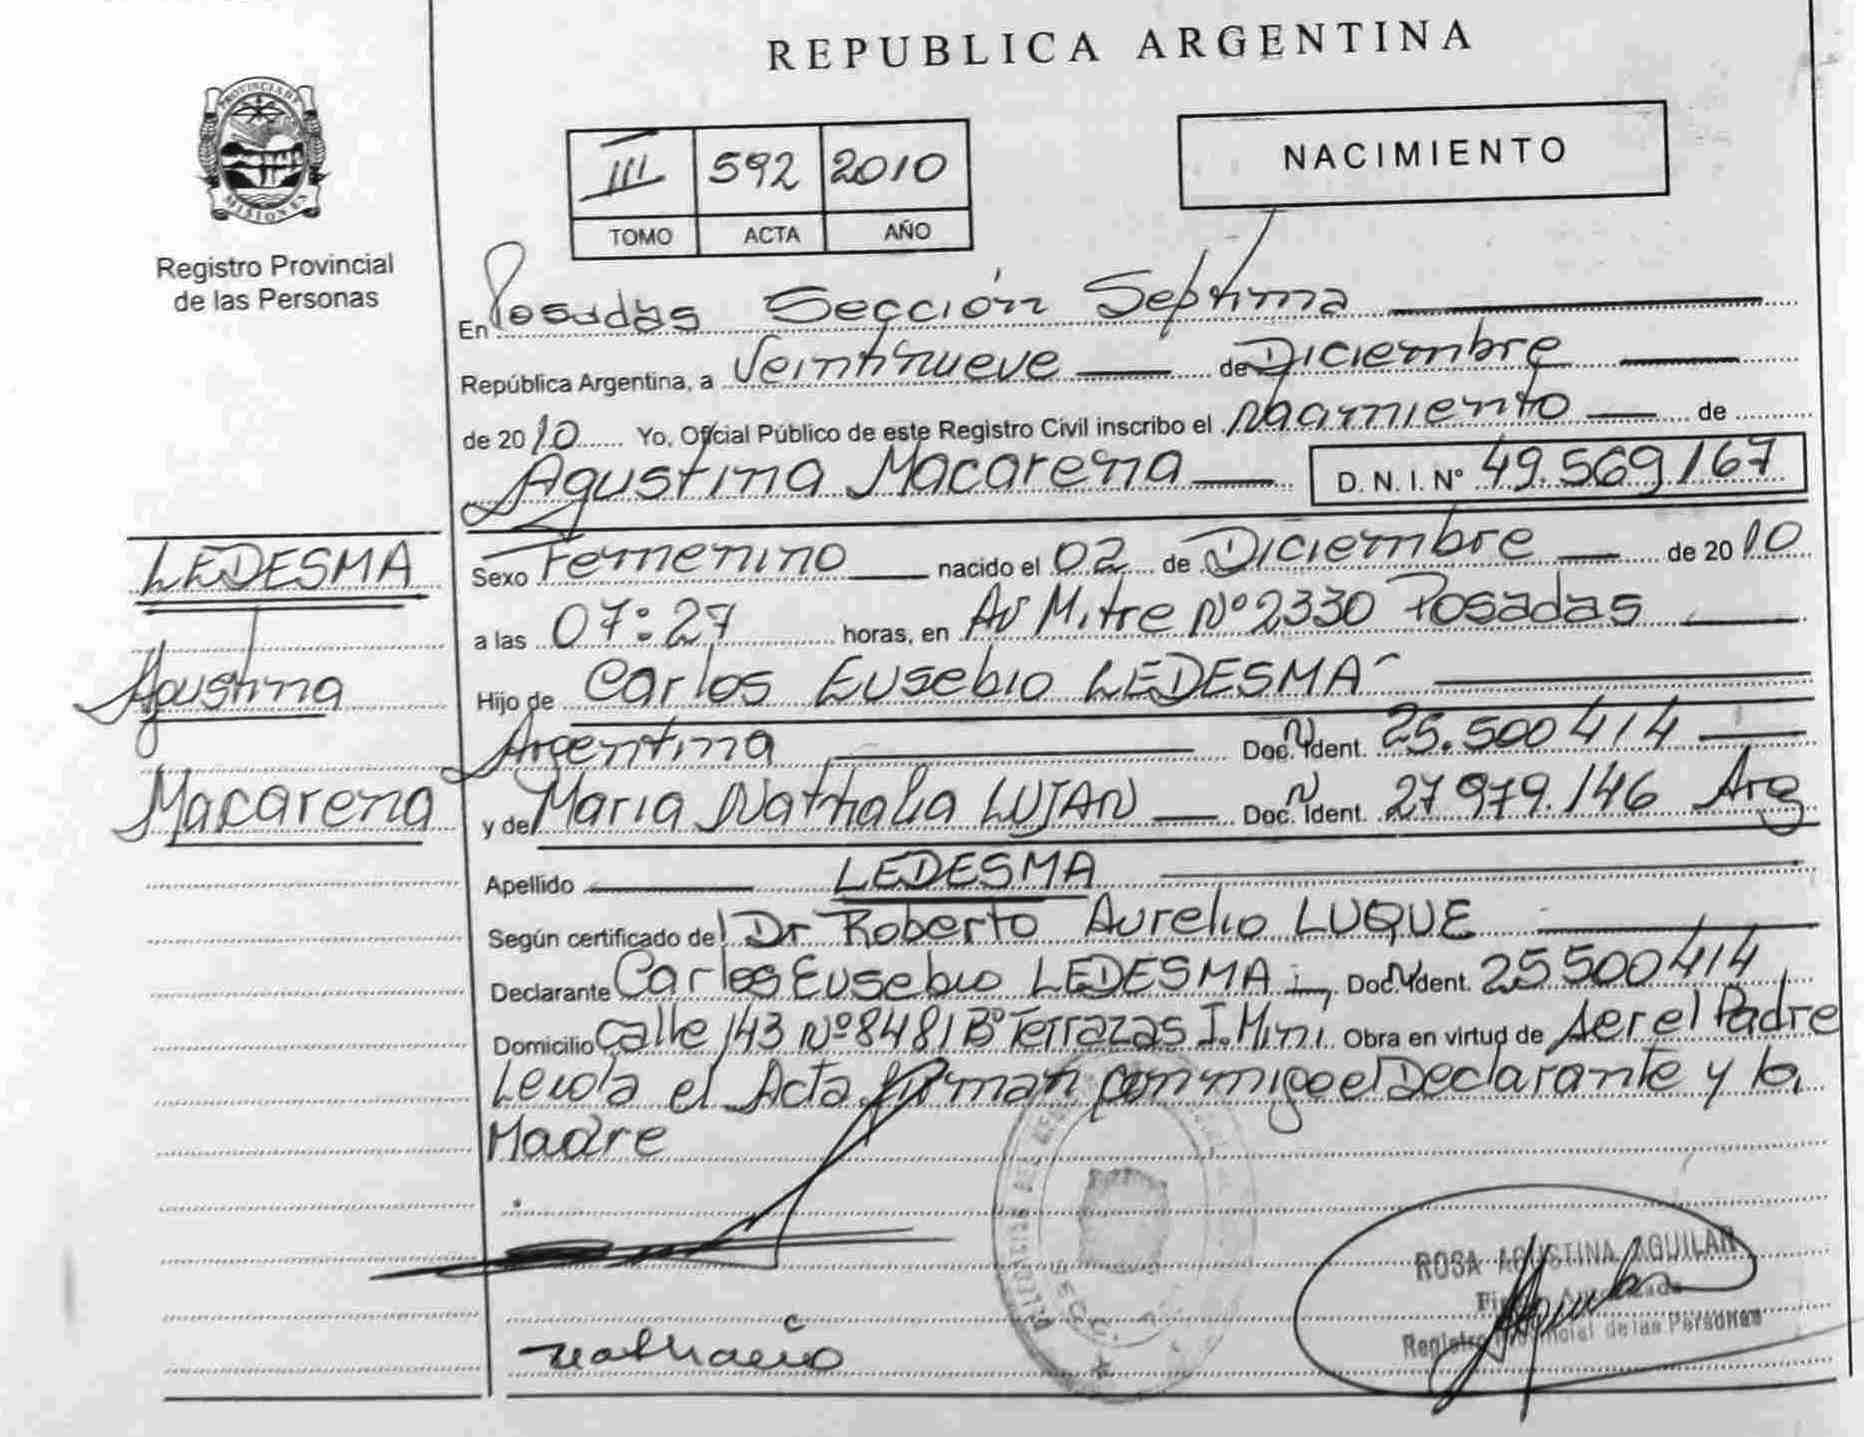 REPUBLICA ARGENTINA
PROVINCIA DE
MISIONES
Registro Provincial
de las Personas
III 592 2010
TOMO ACTA AÑO
NACIMIENTO
En Posadas Sección Septima
República Argentina, a Veintinueve de Diciembre
de 2010 Yo, Oficial Público de este Registro Civil inscribo el Nacimiento de
Agustina Macarena D.N.I. Nº 49.569.167
LEDESMA
Agustina
Macarena
Sexo Femenino nacido el 02 de Diciembre de 2010
a las 07:27 horas, en Av Mitre Nº 2330 Posadas
Hijo de Carlos Eusebio LEDESMA
Argentina Doc. Ident. 25.500 414
y de Maria Nathalia LUJAN Doc. Ident. 27 979.146 Arg
Apellido LEDESMA
Según certificado del Dr Roberto Aurelio LUQUE
Declarante Carlos Eusebio LEDESMA Doc. Ident. 25 500 414
Domicilio Calle 143 Nº 8481 Bº Terrazas I. Mini Obra en virtud de ser el Padre
Leida el Acta firman conmigo el Declarante y la
Madre
ROSA AGUSTINA AGUILAR
Registro Provincial de las Personas